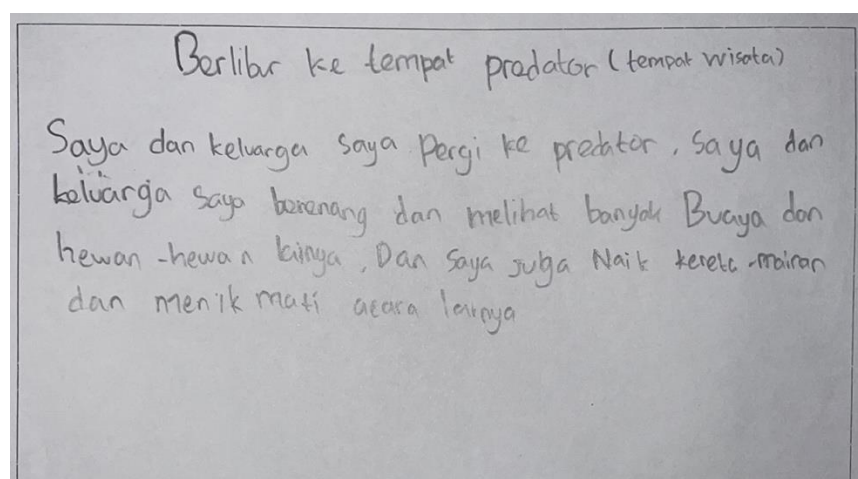 Berlibur ke tempat predator (tempat wisata)
Saya dan keluarga saya Pergi ke predator. Saya dan
keluarga saya berenang dan melihat banyak Buaya dan
hewan-hewan lainya, Dan Saya juga Naik kereta-mainan
dan menikmati acara lainya